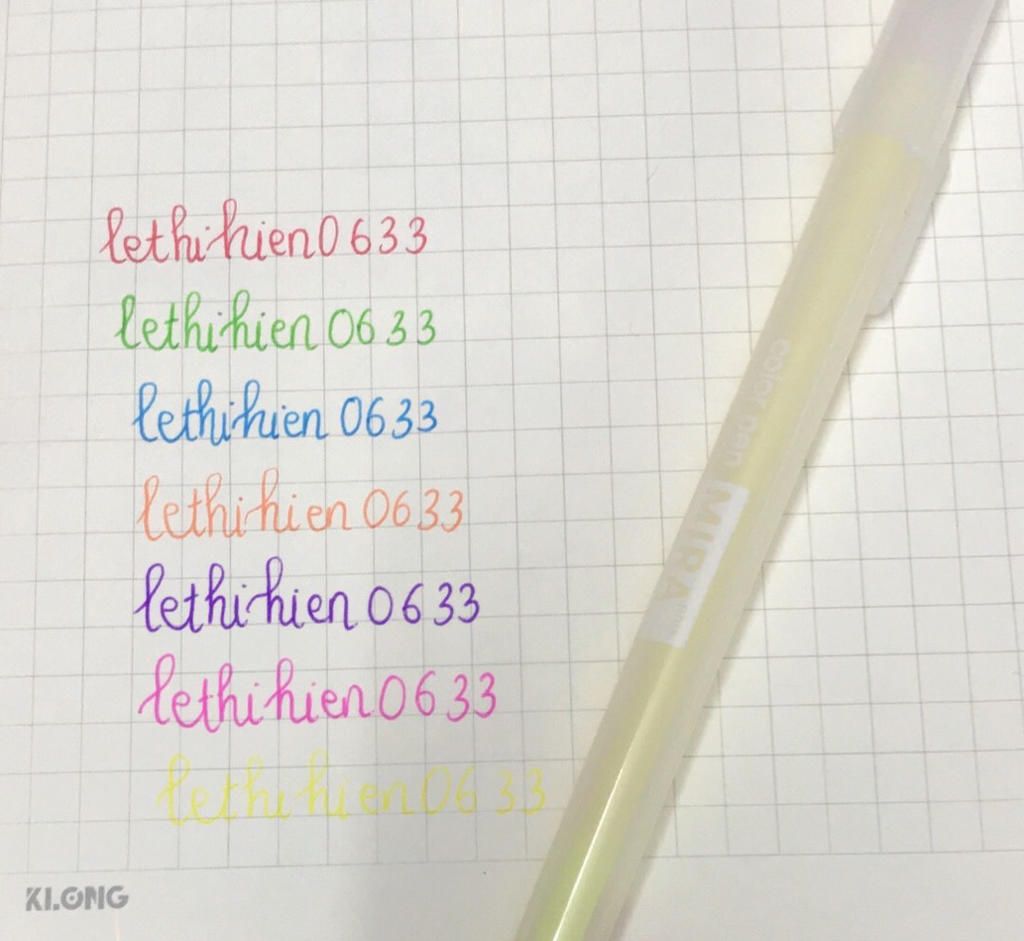 lethihien0633
lethihien 0633
lethihien 0633
lethihien 0633
lethihien 0633
lethihien 0633
lethihien 0633
color pen
MIRA
KLONG